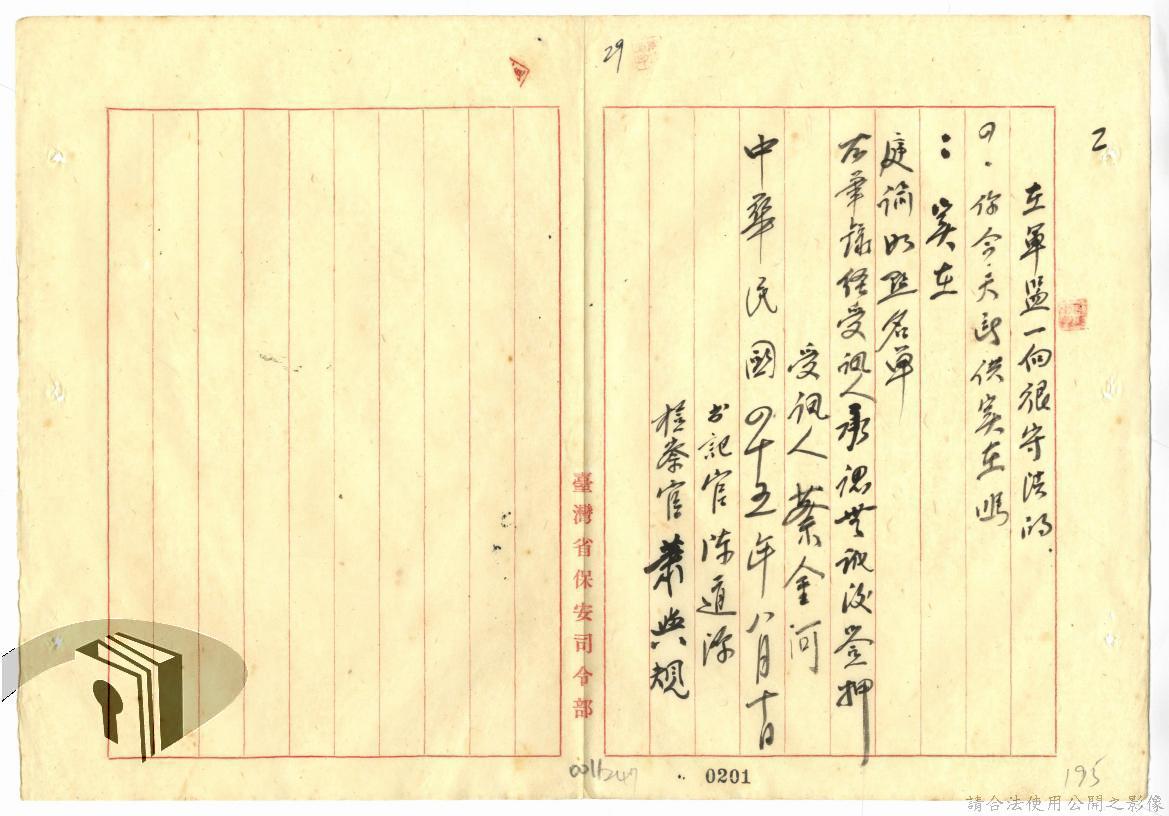 乙
在軍監一向很守法的.
四. 你今天所供实在嗎
: 实在
庭諭如點名單
右筆錄經受訊人承認無訛后簽押
受訊人 蔡金河
中華民國四十五年八月十日
書記官 陈道源
檢察官 萧與規
29
臺灣省保安司令部
0011247
0201
195
請合法使用公開之影像